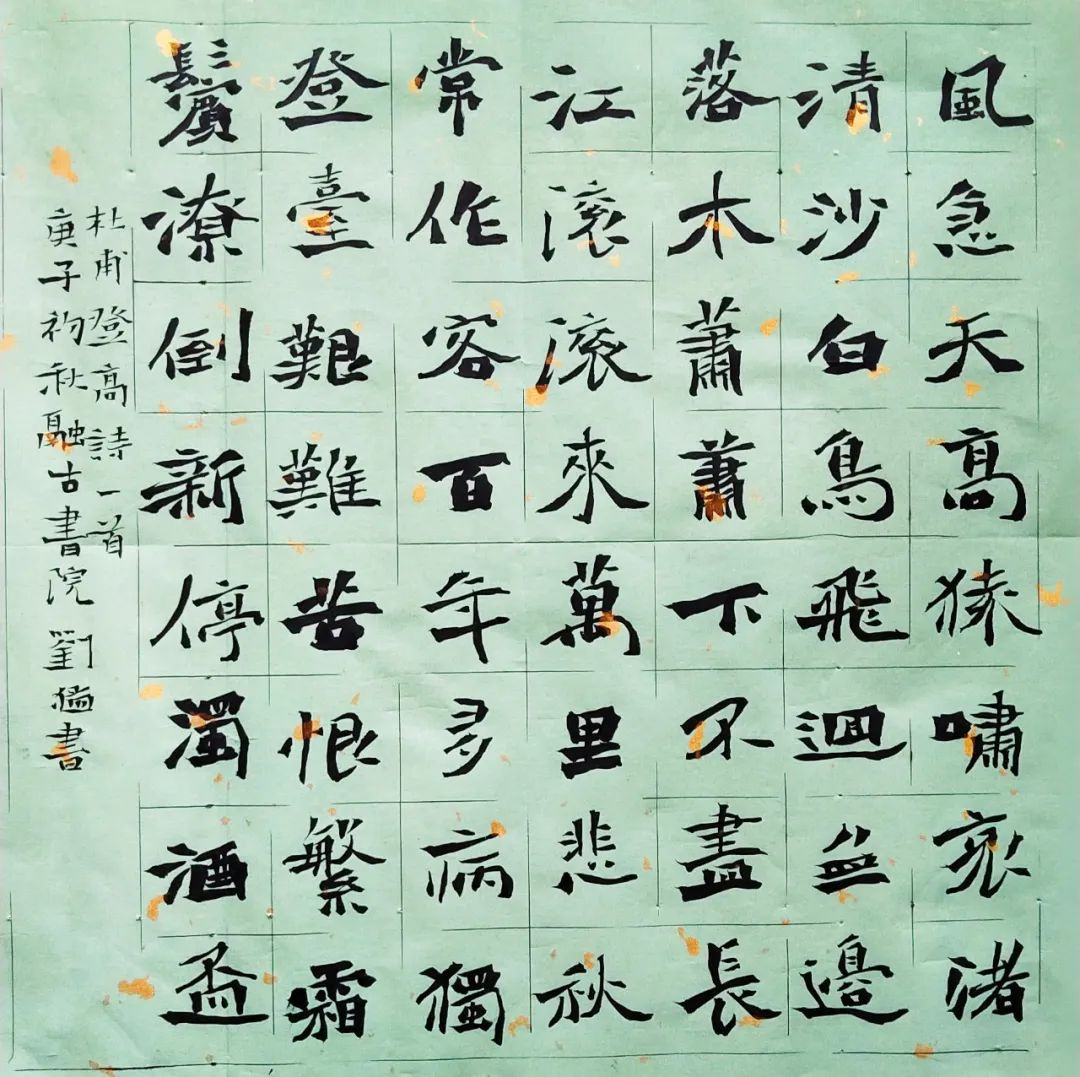 風急天高猿嘯哀渚
清沙白鳥飛迴無邊
落木蕭蕭下不盡長
江滾滾來萬里悲秋
常作客百年多病獨
登臺艱難苦恨繁霜
鬢潦倒新停濁酒盃
杜甫登高詩一首
庚子初秋融古書院劉猛書